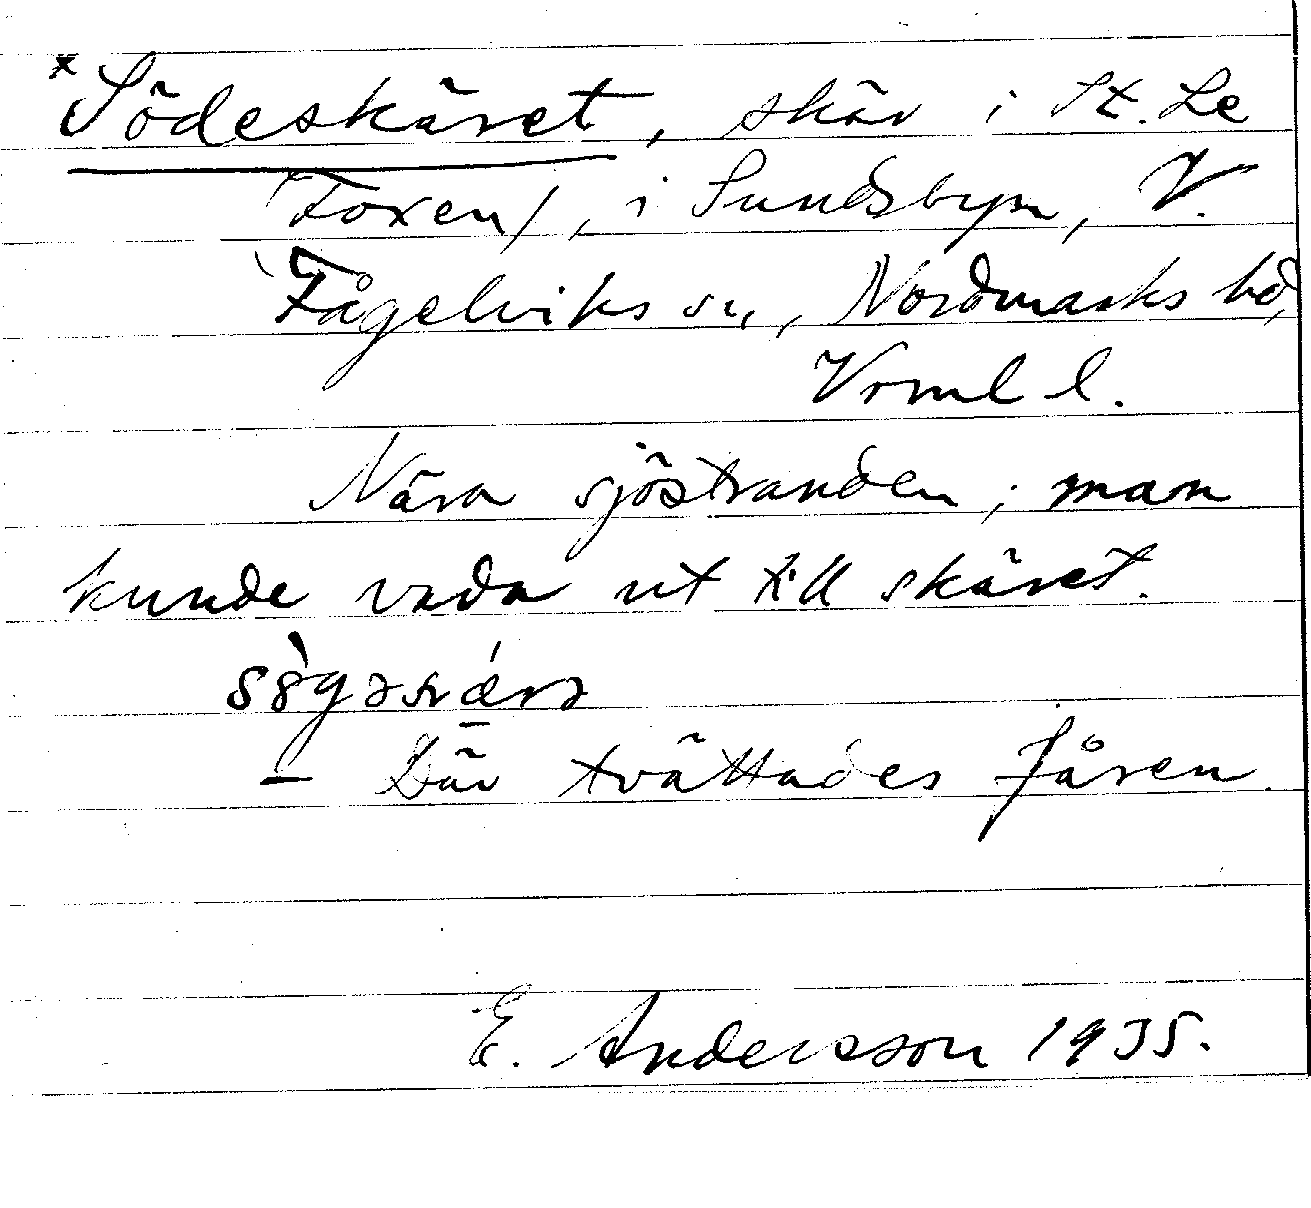 *Södeskäret, skär i St. Le
(Foxen), i Sundsbyn, V.
Fågelviks sn, Nordmarks hd,
Vrml l.
Nära sjöstranden; man
kunde vada ut till skäret.
— Där tvättades fåren.
E. Andersson 1935.